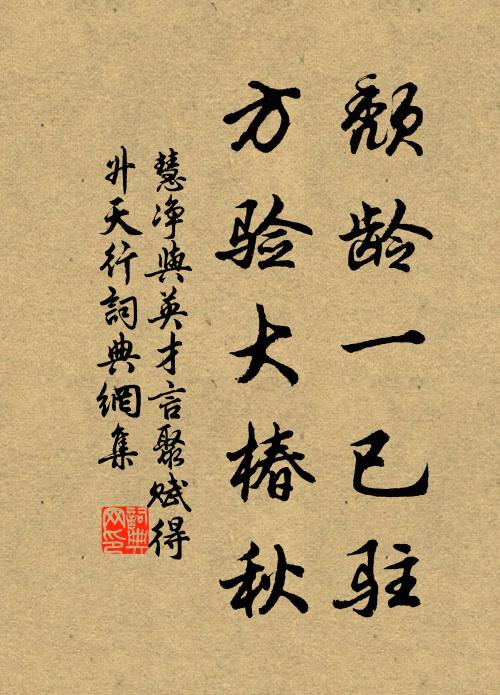 颓龄一已驻
方验大椿秋
慧净與英才言聚赋得
升天行詞典網集
詞典网印